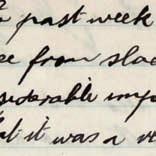 past week
from slac
siderable imp
it was a ve